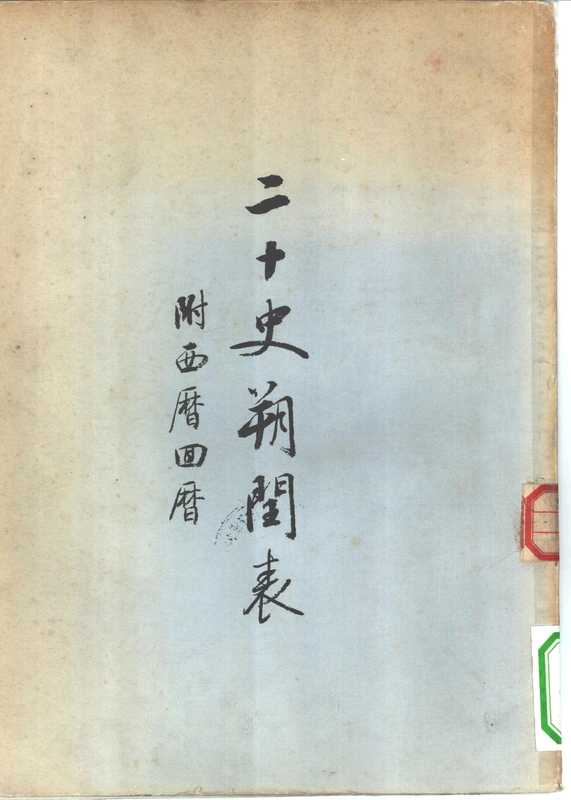 二十史朔閏表
附西曆囬曆